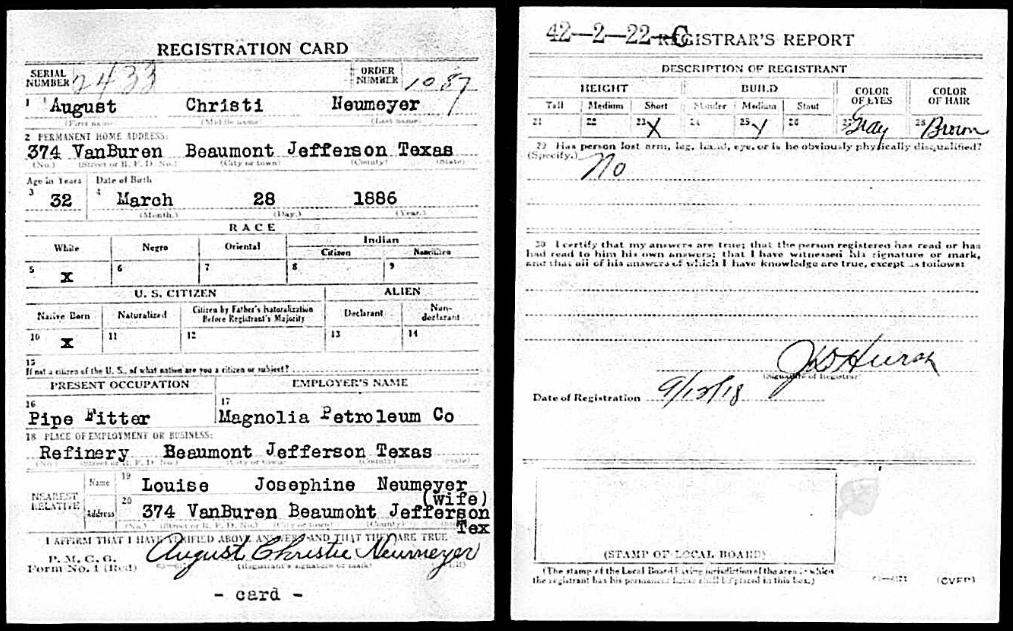 REGISTRATION CARD
SERIAL NUMBER 2433 ORDER NUMBER 1087
1 August Christi Neumeyer
(First name) (Middle name) (Last name)
2 PERMANENT HOME ADDRESS:
374 VanBuren Beaumont Jefferson Texas
(No.) (Street or R. F. D. No.) (City or town) (County) (State)
Age in Years Date of Birth
3 32 4 March 28 1886
(Month.) (Day.) (Year.)
RACE
White Negro Oriental Indian
Citizen Noncitizen
5 X 6 7 8 9
U. S. CITIZEN ALIEN
Native Born Naturalized Citizen by Father's Naturalization Before Registrant's Majority Declarant Non-declarant
10 X 11 12 13 14
15
If not a citizen of the U. S., of what nation are you a citizen or subject?
PRESENT OCCUPATION EMPLOYER'S NAME
16 17
Pipe Fitter Magnolia Petroleum Co
18 PLACE OF EMPLOYMENT OR BUSINESS:
Refinery Beaumont Jefferson Texas
(No.) (Street or R. F. D. No.) (City or town) (County) (State)
NEAREST RELATIVE
Name 19 Louise Josephine Neumeyer
(Wife)
Address 20 374 VanBuren Beaumoht Jefferson
Tex
(No.) (Street or R. F. D. No.) (City or town) (County)
I AFFIRM THAT I HAVE VERIFIED ABOVE ANSWERS AND THAT THEY ARE TRUE
P. M. C. O.
Form No. 1 (Red) August Christie Neumeyer
(Registrant's signature or mark)
- card -
42-2-22-C REGISTRAR'S REPORT
DESCRIPTION OF REGISTRANT
HEIGHT BUILD COLOR OF EYES COLOR OF HAIR
Tall Medium Short Slender Medium Stout
21 22 23 X 24 25 X 26 27 Gray 28 Brown
29 Has person lost arm, leg, hand, eye, or is he obviously physically disqualified?
(Specify.) No
30 I certify that my answers are true; that the person registered has read or has
had read to him his own answers; that I have witnessed his signature or mark,
and that all of his answers of which I have knowledge are true, except as follows:
(Signature of Registrar)
Date of Registration 9/12/18
(STAMP OF LOCAL BOARD)
(The stamp of the Local Board having jurisdiction of the area in which
the registrant has his permanent home shall be placed in this box.)
(OVER)